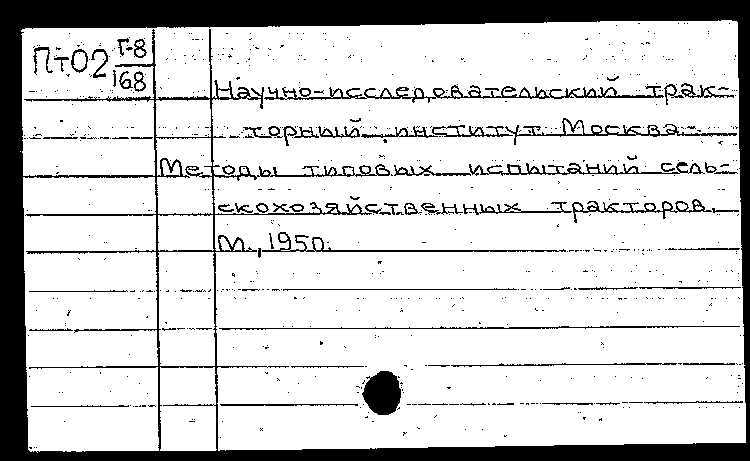 Пт02 Г-8
168
Научно-исследовательский трак-
торный институт. Москва.
Методы типовых испытаний сель-
скохозяйственных тракторов.
М., 1950.